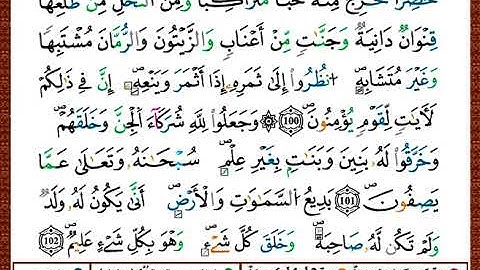 خَضِرًا نُّخْرِجُ مِنْهُ حَبًّا مُّتَرَاكِبًا وَمِنَ النَّخْلِ مِن طَلْعِهَا
قِنْوَانٌ دَانِيَةٌ وَجَنَّٰتٍ مِّنْ أَعْنَابٍ وَالزَّيْتُونَ وَالرُّمَّانَ مُشْتَبِهًا
وَغَيْرَ مُتَشَٰبِهٍ انظُرُوا إِلَىٰ ثَمَرِهِ إِذَا أَثْمَرَ وَيَنْعِهِ إِنَّ فِي ذَٰلِكُمْ
لَأٓيَٰتٍ لِّقَوْمٍ يُؤْمِنُونَ 100 ۞ وَجَعَلُوا لِلَّهِ شُرَكَآءَ الْجِنَّ وَخَلَقَهُمْ
وَخَرَّقُوا لَهُ بَنِينَ وَبَنَٰتٍ بِغَيْرِ عِلْمٍ سُبْحَٰنَهُ وَتَعَالَىٰ عَمَّا
يَصِفُونَ 101 بَدِيعُ السَّمَٰوَٰتِ وَالْأَرْضِ أَنَّىٰ يَكُونُ لَهُ وَلَدٌ
وَلَمْ تَكُن لَّهُ صَٰحِبَةٌ وَخَلَقَ كُلَّ شَيْءٍ وَهُوَ بِكُلِّ شَيْءٍ عَلِيمٌ 102